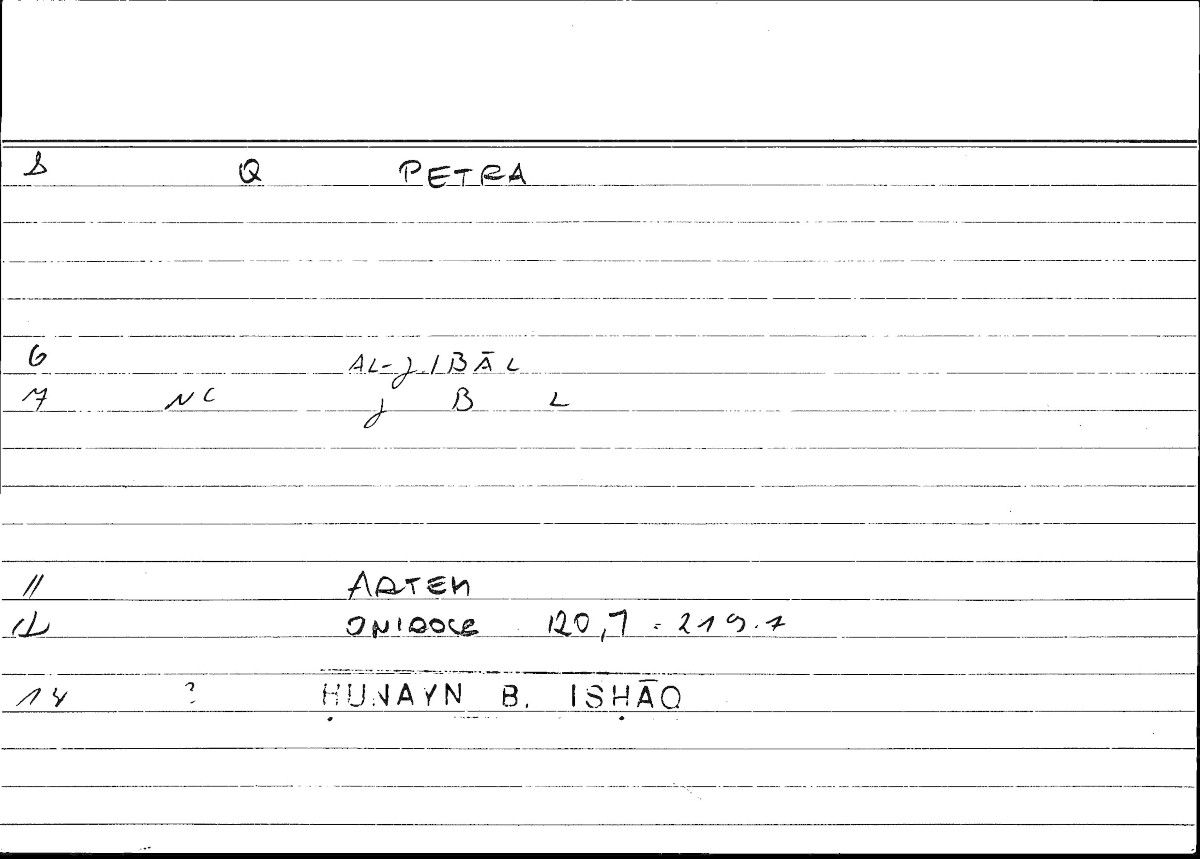 Q PETRA
6 AL-JIBĀL
7 NC J B L
11 ARTEM
12 ONIROCR 120,7 = 219.1
14 ? ḤUNAYN B. ISḤĀQ